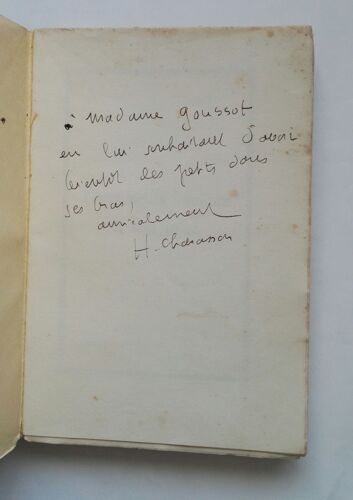 à madame goussot
en lui souhaitant d'avoir
bientôt des petits dans
ses bras,
amicalement
H. Charasson